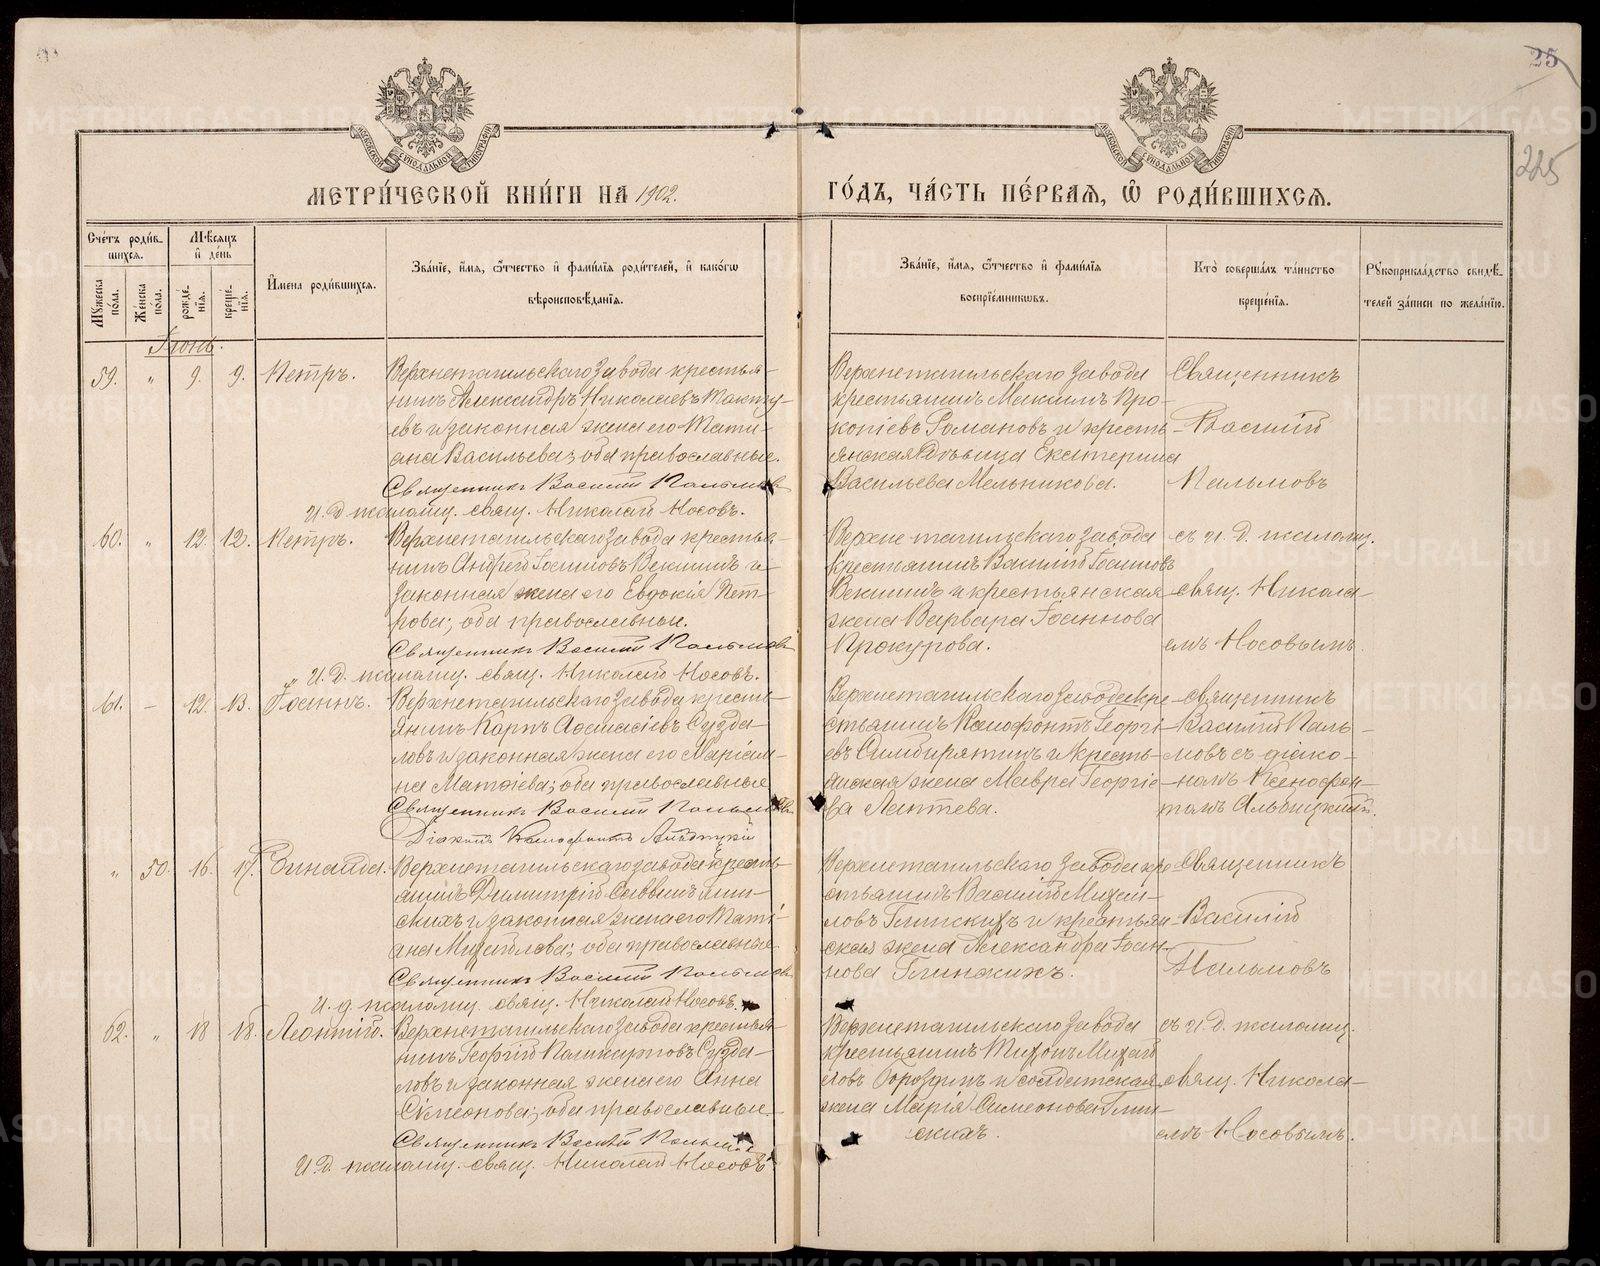 25
225
МОСКОВСКОЙ СѴНОДАЛЬНОЙ ТИПОГРАФІИ
МОСКОВСКОЙ СѴНОДАЛЬНОЙ ТИПОГРАФІИ
МЕТРИ́ЧЕСКОЙ КНИ́ГИ НА 1902.
ГО́ДЪ, ЧА́СТЬ ПЕ́РВАЯ, Ѡ҆ РОДИ́ВШИХСЯ.
Сче́тъ роди́в-
шихся.
Му́жеска по́ла.
Же́нска по́ла.
Мѣ́сяцъ
и҆ де́нь
рожде́-
нїѧ.
креще́-
нїѧ.
И҆мена роди́вшихся.
Зва́нїе, и҆́мя, ѻ҆́тчество и҆ фами́лїя роди́телей, и҆ како́гѡ
вѣроисповѣ́данїя.
Зва́нїе, и҆́мя, ѻ҆́тчество и҆ фами́лїя
воспрїе́мникѡвъ.
Кто̀ соверша́лъ та́инство
креще́нїя.
Рꙋкоприкла́дство свидѣ́-
телей за́писи по жела́нїю.
Іюнь.
59. " 9. 9. Петръ.
Верхнетагильскаго завода крестья-
нинъ Александръ Николаевъ
евъ и законная жена его Тати-
ана Васильева; оба православные.
Священникъ Василій Пальмовъ
И. д. псаломщ. свящ. Николай Носовъ.
Верхнетагильскаго завода
крестьянинъ Максимъ Про-
копіевъ Романовъ и кресть-
янская дѣвица Екатерина
Васильева Мельникова.
Священникъ
Василій
Пальмовъ
60. " 12. 12. Петръ.
Верхнетагильскаго завода крестья-
нинъ Андрей Іоанновъ Векшинъ и
законная жена его Евдокія Пет-
рова; оба православные.
Священникъ Василій Пальмовъ
И. д. псаломщ. свящ. Николай Носовъ.
Верхнетагильскаго завода
крестьянинъ Василій Іоанновъ
Векшинъ и крестьянская
жена Варвара Іоаннова
Прокурова.
съ и. д. псаломщ.
свящ. Никола-
емъ Носовымъ.
61. – 12. 13. Іоаннъ.
Верхнетагильскаго завода кресть-
янинъ Карпъ Аѳанасіевъ Сузда-
ловъ и законная жена его Маріам-
на Матѳіева; оба православные
Священникъ Василій Пальмовъ
Діаконъ Ксенофонтъ Альбицкій
Верхнетагильскаго завода кре-
стьянинъ Ксенофонтъ Георгі-
евъ Симбирятинъ и кресть-
янская жена Мавра Георгіе-
ва Лаптева.
священникъ
Василій Паль-
мовъ съ діако-
номъ Ксенофон-
томъ Альбицкимъ.
" 50. 16. 17. Зинаида.
Верхнетагильскаго завода кресть-
янинъ Димитрій Саввинъ Глин-
скихъ и законная жена его Таті-
ана Михаилова; оба православные.
Священникъ Василій Пальмовъ
И. д. псаломщ. свящ. Николай Носовъ.
Верхнетагильскаго завода кре-
стьянинъ Василій Михаи-
ловъ Глинскихъ и крестьян-
ская жена Александра Іоан-
нова Глинскихъ.
Священникъ
Василій
Пальмовъ
62. " 18 18. Леонтій.
Верхнетагильскаго завода крестья-
нинъ Георгій Сузда-
ловъ и законная жена его Анна
Сѵмеонова; оба православные.
Священникъ Василій Пальмовъ
И. д. псаломщ. свящ. Николай Носовъ
Верхнетагильскаго завода
крестьянинъ Тихонъ Михай-
ловъ Бороздинъ и солдатская
жена Марія Симеонова Глин-
скихъ.
съ и. д. псаломщ.
свящ. Никола-
емъ Носовымъ.
METRIKI.GASO-URAL.RU